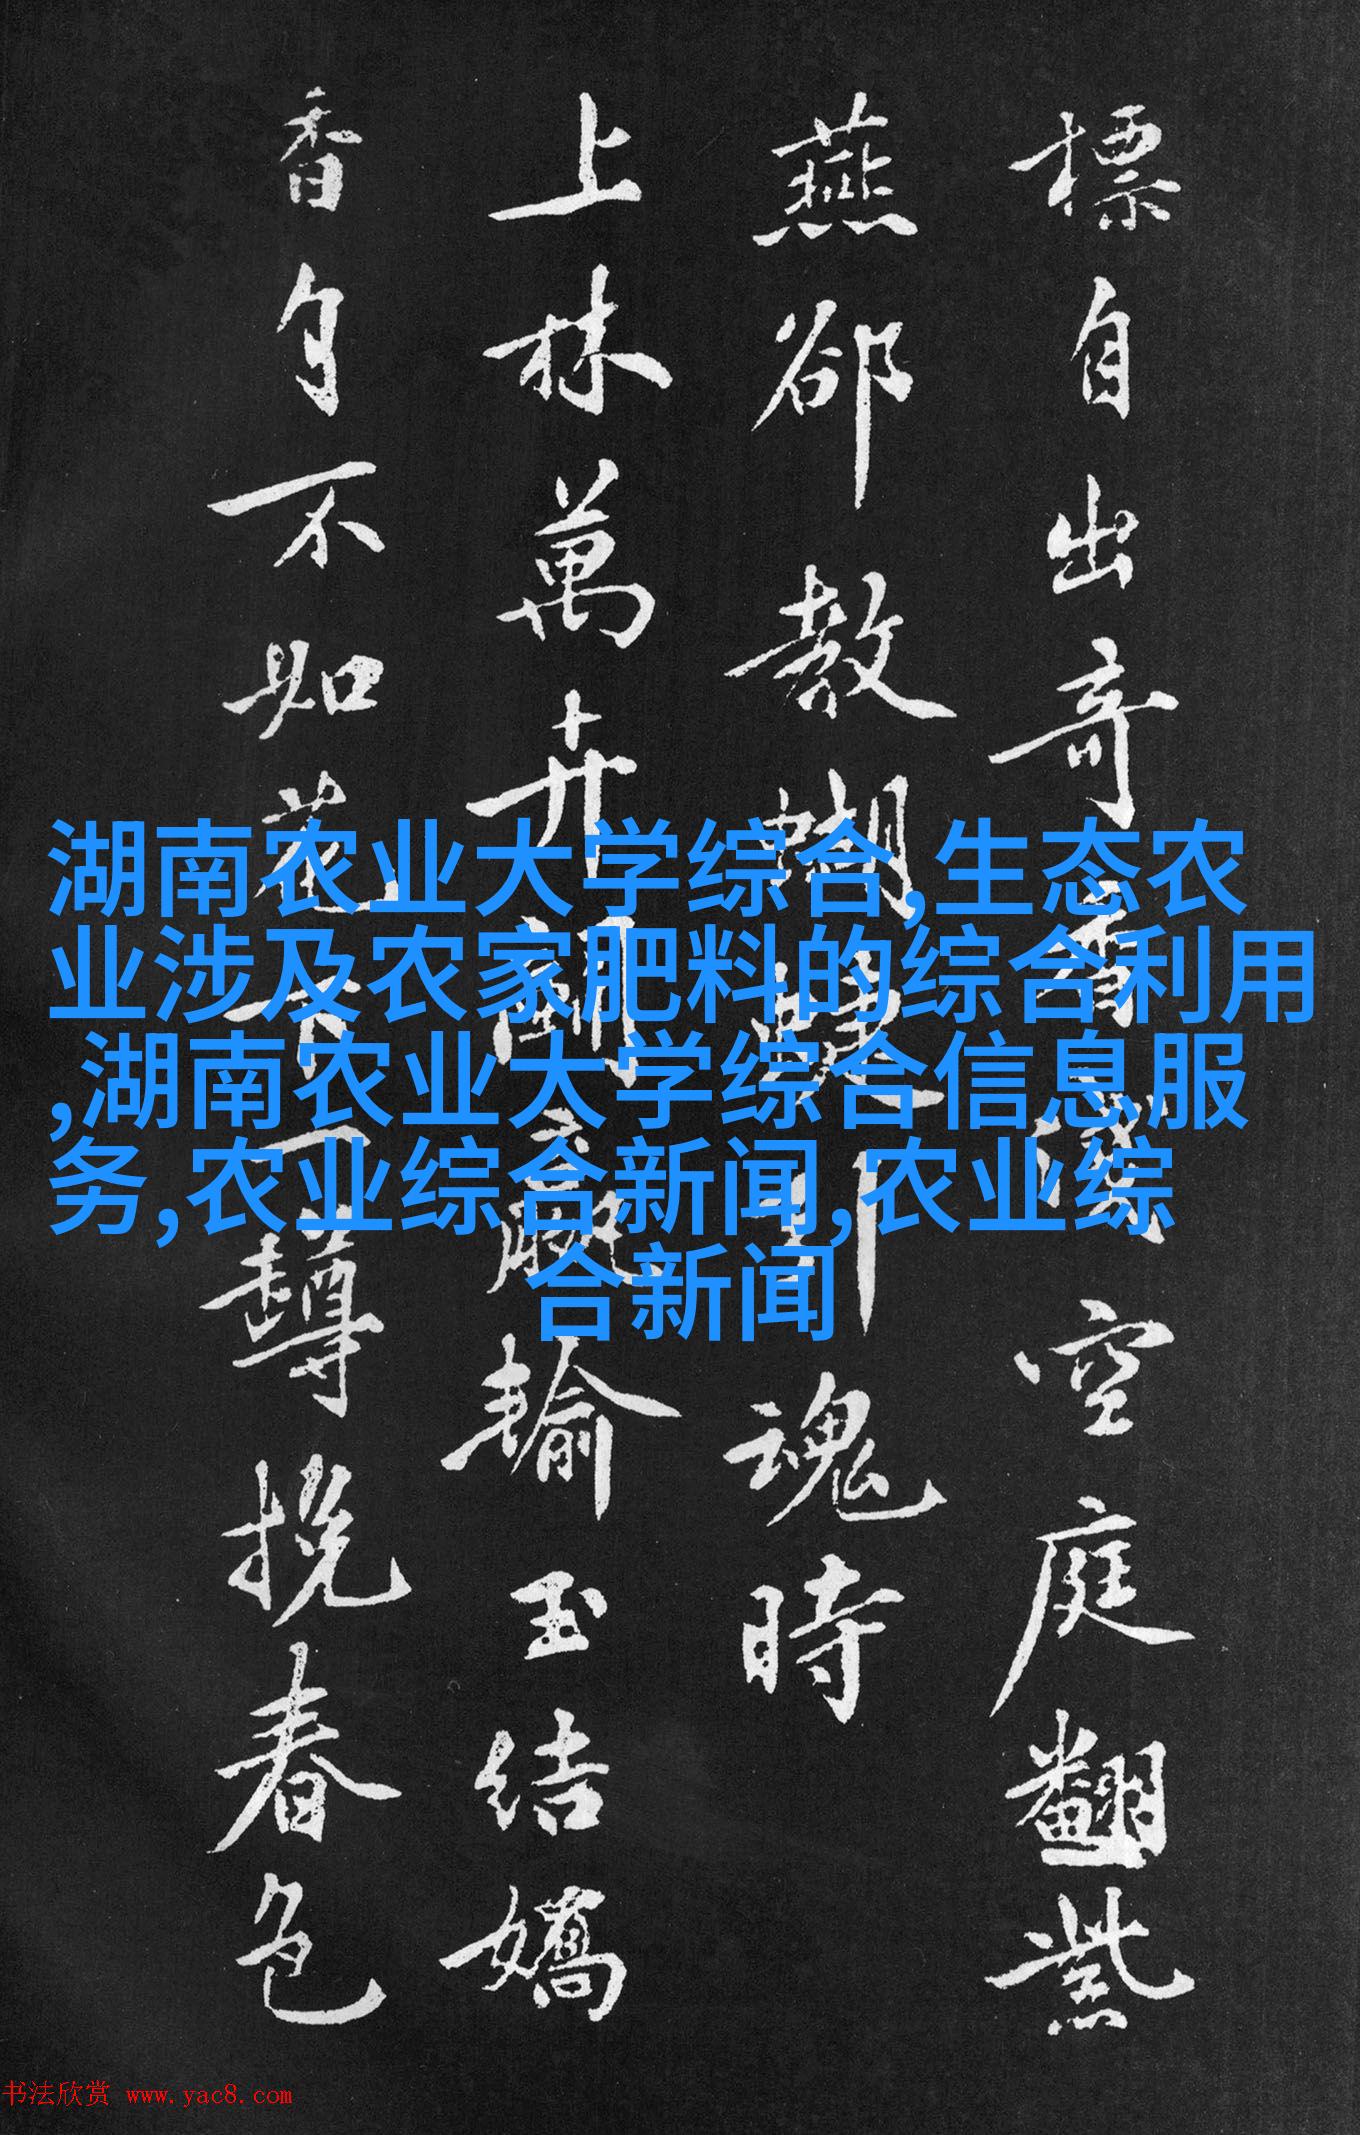 標自出奇空庭翻紫
燕郤教蝴蝶引魂時
上林萬卉輸玉結嬌
香自不如花下一樽挽春色
湖南农业大学综合,生态农
业涉及农家肥料的综合利用
,湖南农业大学综合信息服
务,农业综合新闻,农业综
合新闻
书法欣赏 www.yac8.com